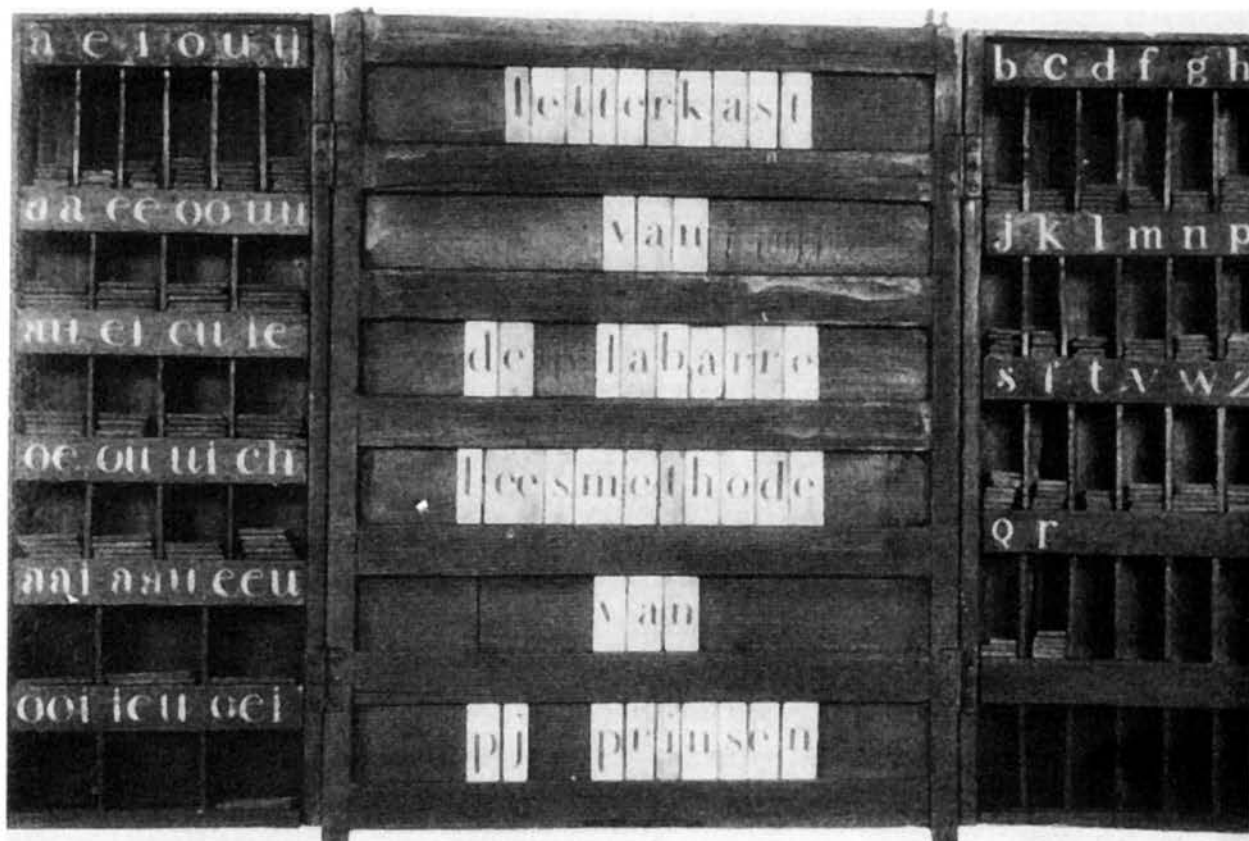 a e i o u ij
aa ee oo uu
au ei eu ie
oe ou ui ch
aai aau eeu
ooi ieu oei
letterkast
van
de labarre
leesmethode
van
pj prinsen
b c d f g h
j k l m n p
s f t v w z
q r